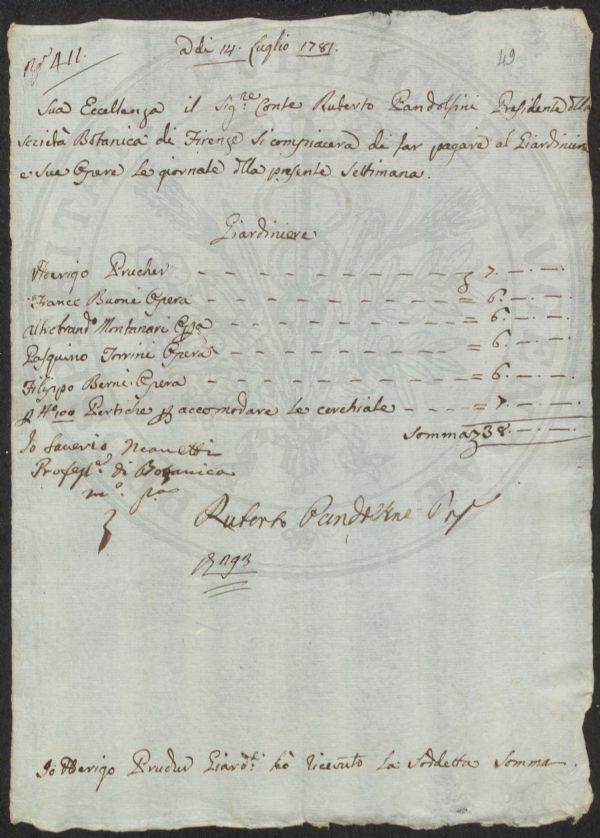 Nº. 411.
Adi 14. Luglio 1781.
49
Sua Eccellenza il Sigre. Conte Ruberto Pandolfini Presidente della
Sozietà Botanica di Firenze Si compiacerà di far pagare al Giardiniere
e sue Opere Le giornate dlla presente Settimana.
Giardiniere
Arrigo Prucher — — — 7. — . —
Franco. Buoni Opera — — — = 6. — . —
Altobrando Montanari Opa — — — = 6. — . —
Pasquino Torrini Opera — — — = 6. — . —
Filippo Berni Opera — — — = 6. — . —
p Nº 100 Pertiche p accomodare le cerchiate — — — = 7. — . —
Somma 38. — . —
Io Saverio Manetti
Profess.e di Botanica
mo. pa
Ruberto Pandolfini Pres
Io Arrigo Prucher Giard.e hò ricevuto La Soddetta Somma.